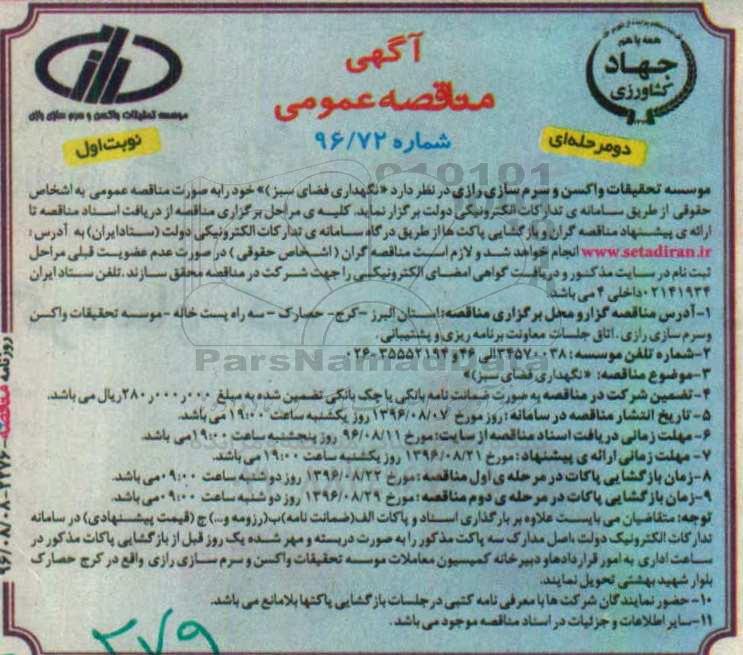 همه با هم
جهاد
کشاورزی
آگهی
مناقصه عمومی
شماره ۹۶/۷۲
رازی
موسسه تحقیقات واکسن و سرم سازی رازی
دو مرحله‌ای
نوبت اول
موسسه تحقیقات واکسن و سرم سازی رازی در نظر دارد «نگهداری فضای سبز)» خود را به صورت مناقصه عمومی به اشخاص
حقوقی از طریق سامانه ی تدارکات الکترونیکی دولت برگزار نماید. کلیه ی مراحل برگزاری مناقصه از دریافت اسناد مناقصه تا
ارائه ی پیشنهاد مناقصه گران و بازگشایی پاکت ها از طریق درگاه سامانه ی تدارکات الکترونیکی دولت (ستادایران) به آدرس:
www.setadiran.ir انجام خواهد شد و لازم است مناقصه گران (اشخاص حقوقی) در صورت عدم عضویت قبلی مراحل
ثبت نام در سایت مذکور و دریافت گواهی امضای الکترونیکی را جهت شرکت در مناقصه محقق سازند. تلفن ستاد ایران
۰۲۱۴۱۹۳۴ داخلی ۴ می باشد.
۱-آدرس مناقصه گزار و محل برگزاری مناقصه: استان البرز -کرج- حصارک -سه راه پست خانه -موسسه تحقیقات واکسن
وسرم سازی رازی. اتاق جلسات معاونت برنامه ریزی و پشتیبانی.
۲-شماره تلفن موسسه: ۳۴۵۷۰۰۳۸ الی ۴۶ و ۳۵۵۵۲۱۹۴-۰۲۶
۳-موضوع مناقصه: «نگهداری فضای سبز)»
۴-تضمین شرکت در مناقصه به صورت ضمانت نامه بانکی یا چک بانکی تضمین شده به مبلغ ۲۸۰٫۰۰۰٫۰۰۰ ریال می باشد.
۵- تاریخ انتشار مناقصه در سامانه: روز مورخ ۱۳۹۶/۰۸/۰۷ روز یکشنبه ساعت ۱۹:۰۰ می باشد.
۶- مهلت زمانی دریافت اسناد مناقصه از سایت: مورخ ۹۶/۰۸/۱۱ روز پنجشنبه ساعت ۱۹:۰۰ می باشد.
۷- مهلت زمانی ارائه ی پیشنهاد: مورخ ۱۳۹۶/۰۸/۲۱ روز یکشنبه ساعت ۱۹:۰۰ می باشد.
۸-زمان بازگشایی پاکات در مرحله ی اول مناقصه: مورخ ۱۳۹۶/۰۸/۲۲ روز دو شنبه ساعت ۰۹:۰۰ می باشد.
۹-زمان بازگشایی پاکات در مرحله ی دوم مناقصه: مورخ ۱۳۹۶/۰۸/۲۹ روز دو شنبه ساعت ۰۹:۰۰ می باشد.
توجه: متقاضیان می بایست علاوه بر بارگذاری اسناد و پاکات الف(ضمانت نامه)ب(رزومه و...) ج (قیمت پیشنهادی) در سامانه
تدارکات الکترونیک دولت ،اصل مدارک سه پاکت مذکور را به صورت دربسته و مهر شده یک روز قبل از بازگشایی پاکات مذکور در
ساعت اداری به امور قراردادها و دبیرخانه کمیسیون معاملات موسسه تحقیقات واکسن و سرم سازی رازی واقع در کرج حصارک
بلوار شهید بهشتی تحویل نمایند.
۱۰-حضور نمایندگان شرکت ها با معرفی نامه کتبی در جلسات بازگشایی پاکتها بلامانع می باشد.
۱۱-سایر اطلاعات و جزئیات در اسناد مناقصه موجود می باشد.
روزنامه مناقصه - ۲۲۷۶ - ۹۶/۰۸/۰۸
ParsNamadData
۲۷۹